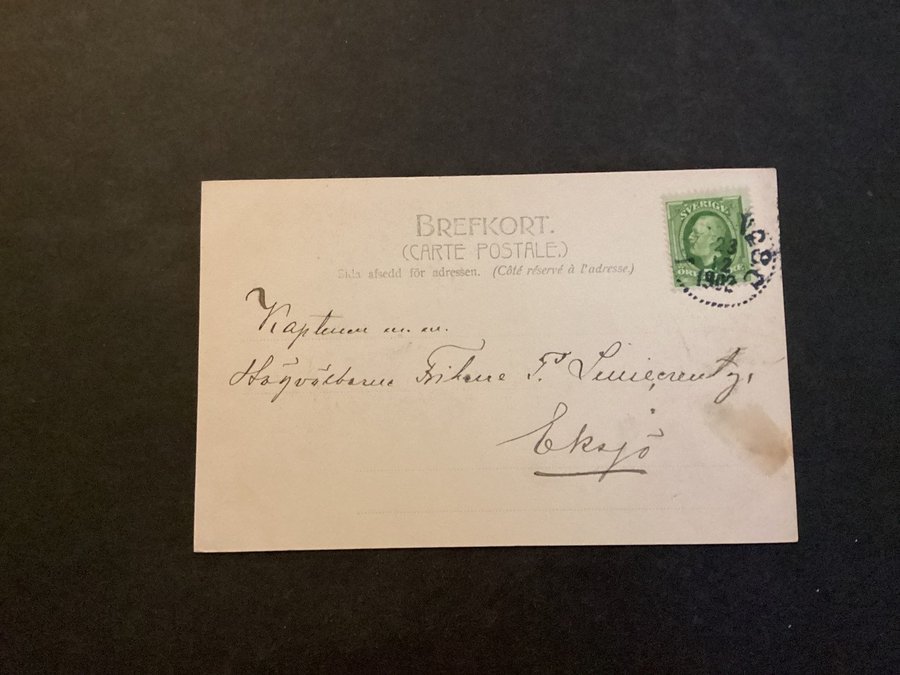 BREFKORT.
(CARTE POSTALE.)
Skla afsedd för adressen. (Côté réservé à l'adresse.)
SVERIGE
ÖRE
23
12
1902
Kaptenen m. m.
Högvälborne Friherre
Eksjö